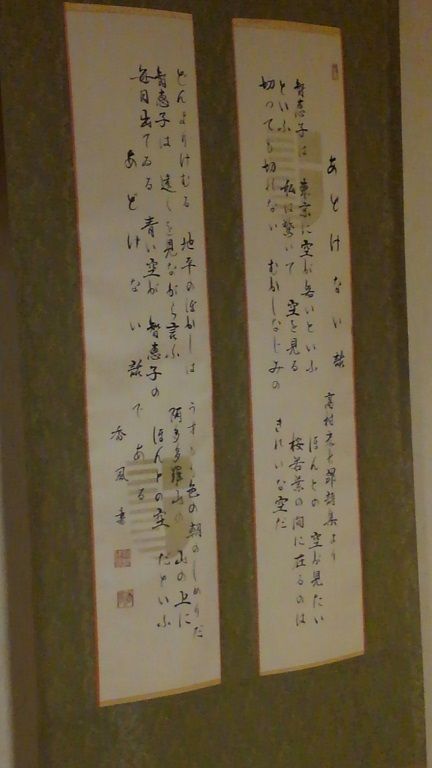 あどけない話　高村光太郎詩集より
智恵子は　東京に空が無いといふ　ほんとの　空が見たい
といふ　私は驚いて　空を見る　桜若葉の間に在るのは
切つても切れない　むかしなじみの　きれいな空だ
どんよりけむる　地平のぼかしは　うすもも色の朝のしめりだ
智恵子は　遠くを見ながら言ふ　阿多多羅山の　山の上に
毎日出てゐる　青い空が　智恵子の　ほんとの空　だといふ
あどけない話　である
香風書